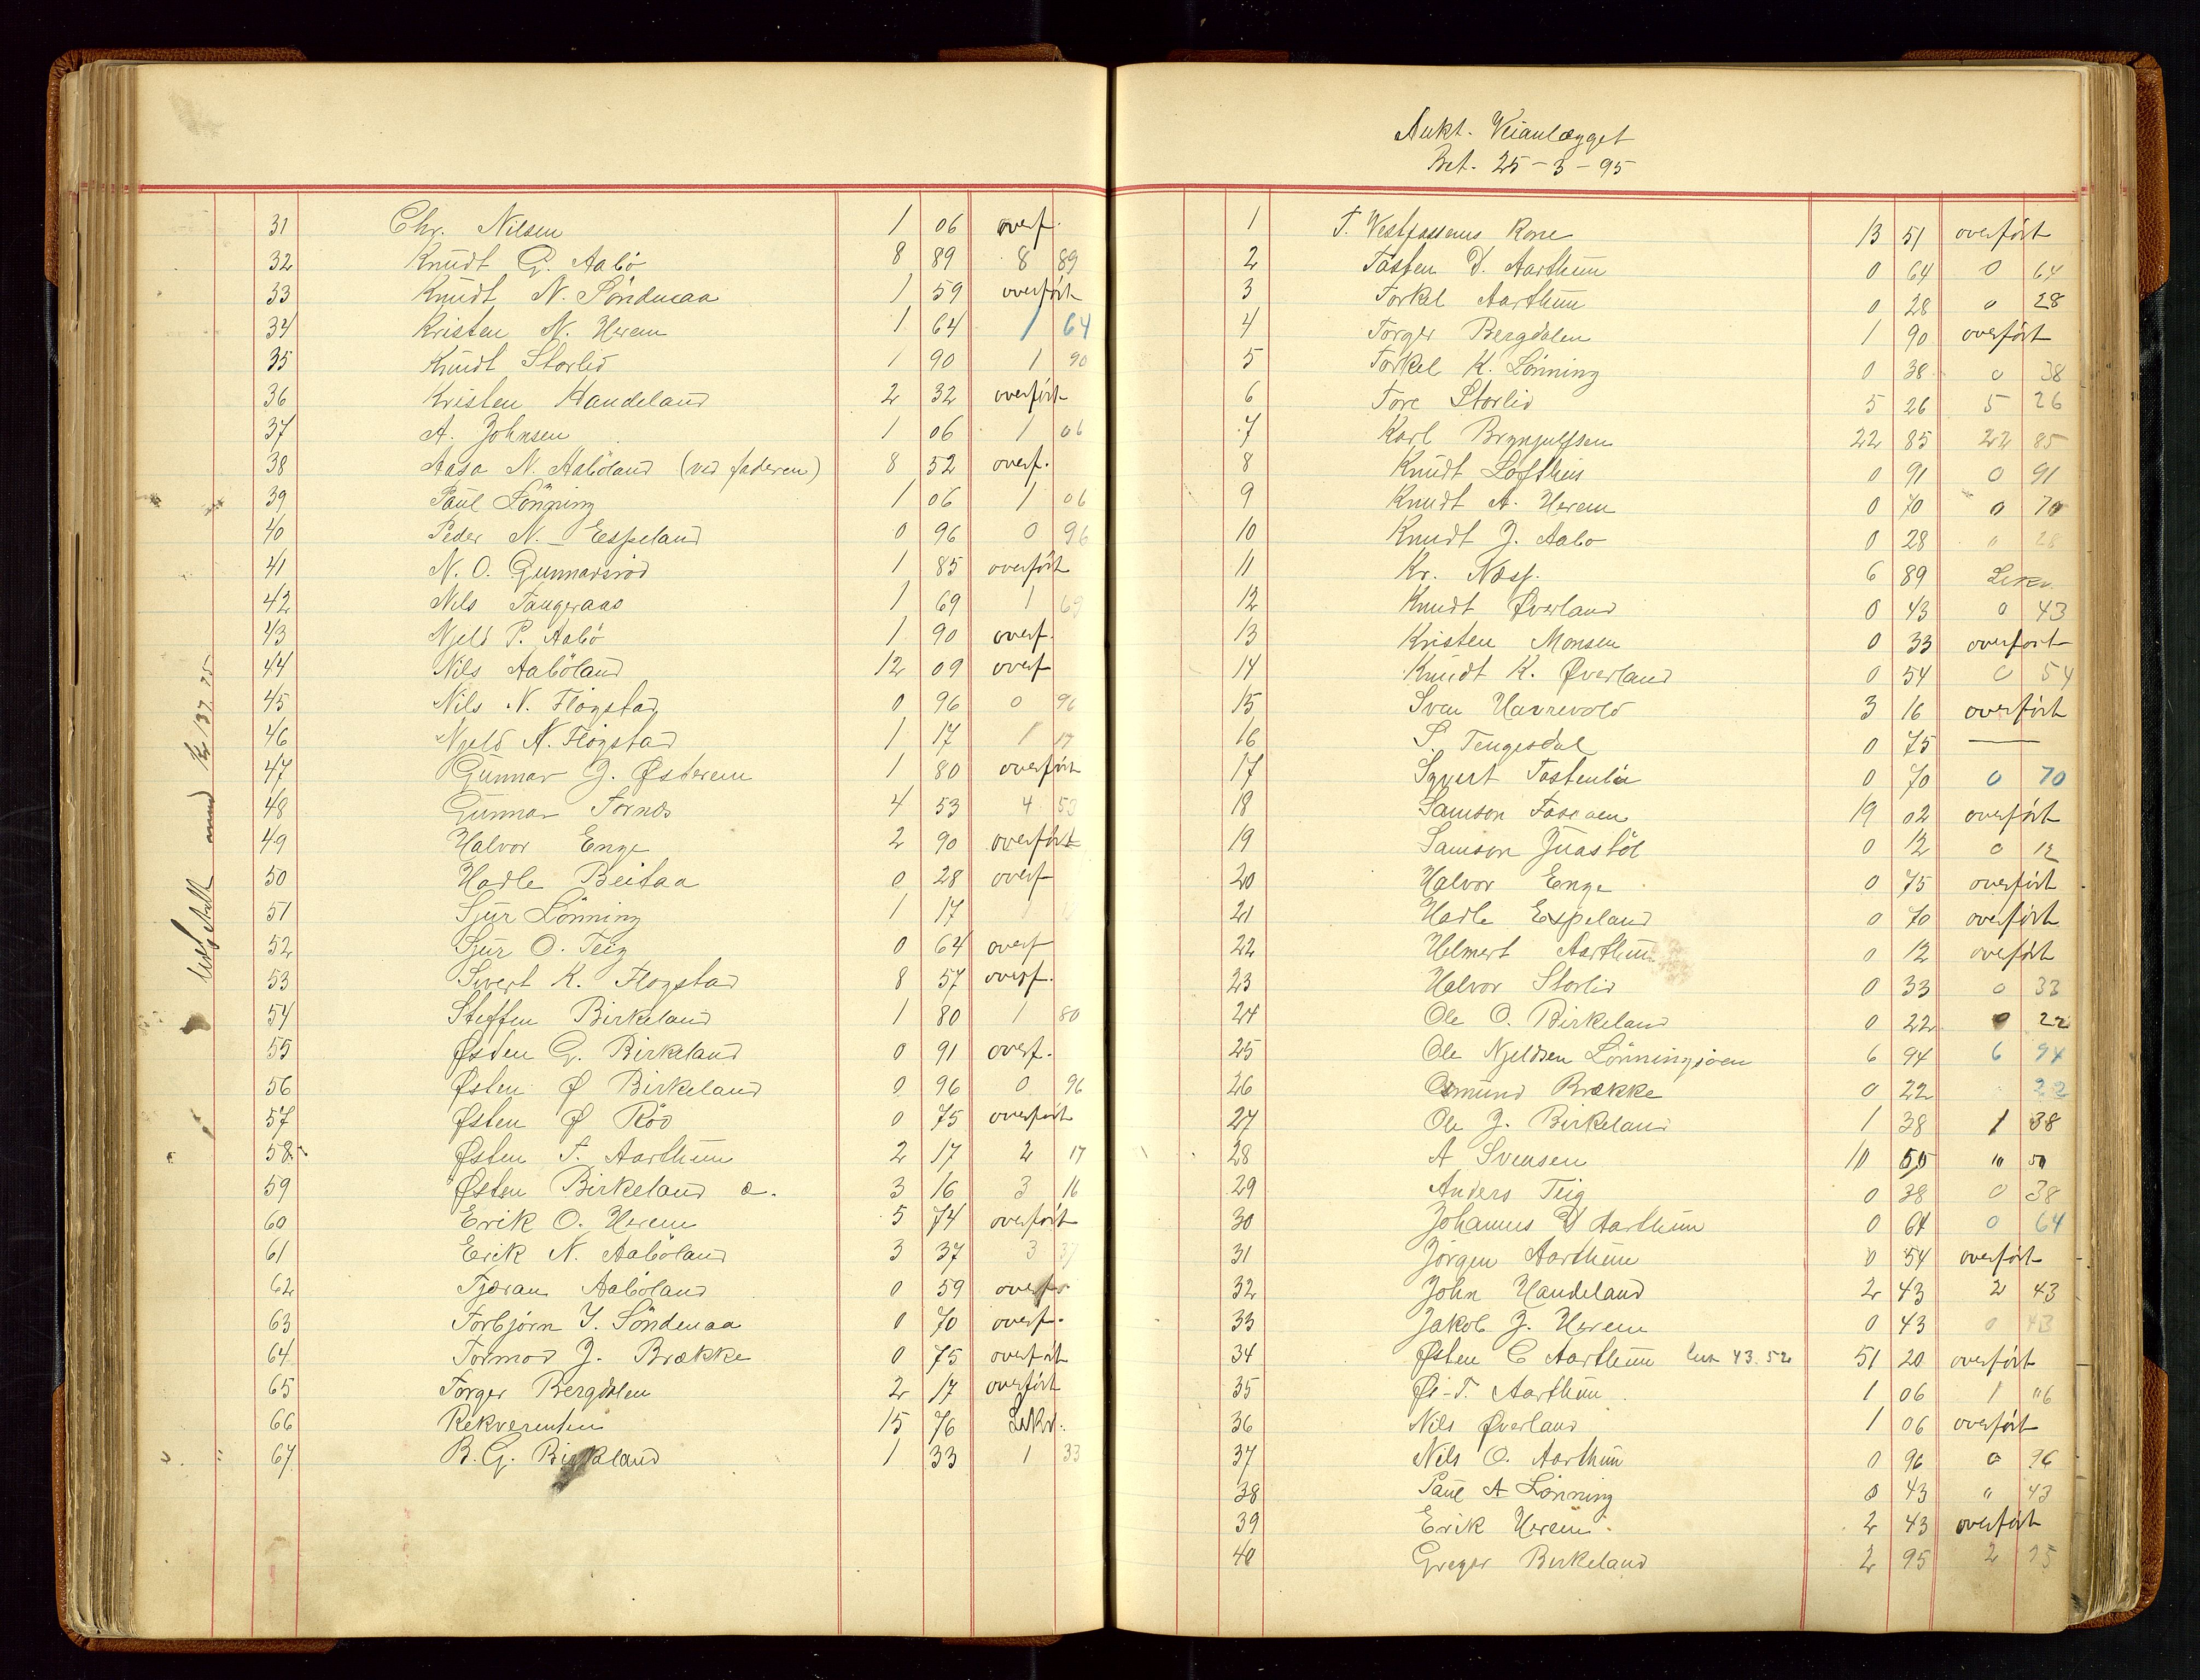 31 Chr. Nilsen 1 06 overf.
32 Knudt G. Aabö 8 89 8 89
33 Knudt N. Söndenaa 1 59 overfört
34 Kristen N. Herem 1 64 1 64
35 Knudt Storlid 1 90 1 90
36 Kristen Handeland 2 32 overfört
37 A. Johnsen 1 06 1 06
38 Aasa N. Aaböland (ved faderen) 8 52 overf.
39 Paul Lönning 1 06 1 06
40 Peder N. Espeland 0 96 0 96
41 N. O. Gunnarsröd 1 85 overfört
42 Nils Tangeraas 1 69 1 69
43 Njeld P. Aabö 1 90 overf.
44 Nils Aaböland 12 09 overf
45 Nils N. Flögstad 0 96 0 96
46 Njeld N. Flögstad 1 17 1 17
47 Gunnar J. Østerem 1 80 overfört
48 Gunnar Tornes 4 53 4 53
49 Halvor Enge 2 90 overfört
50 Hadle Beitaa 0 28 overf
51 Sjur Lönning 1 17 1
52 Sjur O. Teig 0 64 overf
53 Sivert K. Flogstad 8 57 overf.
54 Steffen Birkeland 1 80 1 80
55 Østen G. Birkeland 0 91 overf.
56 Østen Ø Birkeland 0 96 0 96
57 Østen Ø Röd 0 75 overfört
58 Østen T. Aarthun 2 17 2 17
59 Østen Birkeland æ. 3 16 3 16
60 Erik O. Herem 5 74 overfört
61 Erik N. Aaböland 3 37 3 37
62 Tjæran Aaböland 0 59 overf
63 Torbjörn T. Söndenaa 0 70 overf.
64 Tormod J. Brække 0 75 overfört
65 Torger Bergdalen 2 17 overfört
66 Rekverenten 15 76 Lekv.
67 B. G. Birkeland 1 33 1 33
Kr 137 25
Aukt. Veianlægget
Bet. 25-3-95
1 T. Vestfossens Kone 13 51 overfört
2 Tosten D. Aarthun 0 64 0 64
3 Torkel Aarthun 0 28 0 28
4 Torger Bergdalen 1 90 overfört
5 Torkel K. Lönning 0 38 0 38
6 Tore Storlid 5 26 5 26
7 Karl Brynjulfsen 22 85 22 85
8 Knudt Lofthus 0 91 0 91
9 Knudt A. Herem 0 70 0 70
10 Knudt J. Aabo 0 28 " 28
11 Kr. Næss. 6 89 Lekv.
12 Knudt Øverland 0 43 0 43
13 Kristen Monsen 0 33 overfört
14 Knudt K. Øverland 0 54 0 54
15 Sven Havrevold 3 16 overfört
16 S. Tengesdal 0 75 —
17 Syvert Tostenlie 0 70 0 70
18 Samson Fosaaen 19 02 overfört
19 Samson Juastöl 0 12 0 12
20 Halvor Enge 0 75 overfört
21 Hadle Espeland 0 70 overfört
22 Helmert Aarthun 0 12 overfört
23 Halvor Storlid 0 33 0 33
24 Ole O. Birkeland 0 22 0 22
25 Ole Njeldsen Lönningsöen 6 94 6 94
26 Osmund Brække 0 22 22
27 Ole J. Birkeland 1 38 1 38
28 A Svensen 10 50 10 50
29 Anders Teig 0 38 0 38
30 Johannes D Aarthun 0 64 0 64
31 Jörgen Aarthun 0 54 overfört
32 John Handeland 2 43 2 43
33 Jakob J. Herem 0 43 0 43
34 Østen C Aarthun 43.52 51 20 overfört
35 Øi-T. Aarthun 1 06 1 06
36 Nils Øverland 1 06 overfört
37 Nils O. Aarthun 0 96 0 96
38 Paul A Lönning 0 43 " 43
39 Erik Herem. 2 43 overfört
40 Greger Birkeland 2 95 2 95